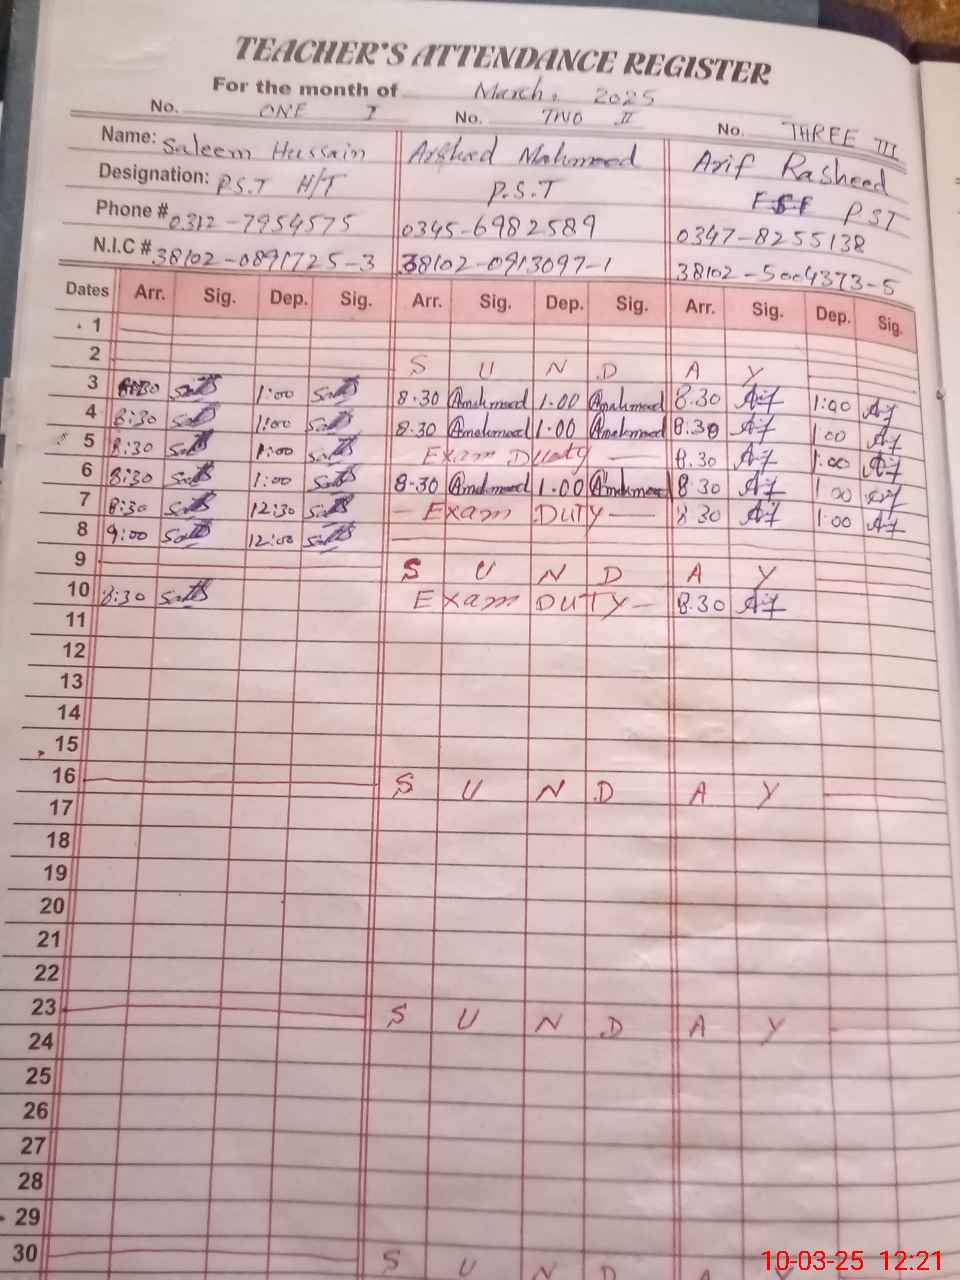 TEACHER'S ATTENDANCE REGISTER
For the month of March, 2025
No. ONE I No. TWO II No. THREE III
Name: Saleem Hussain Arshad Mahmood Arif Rasheed
Designation: P.S.T H/T P.S.T PST
Phone # 0312-7954575 0345-6982589 0347-8255138
N.I.C # 38102-0891725-3 38102-0913097-1 38102-5004373-5
Dates Arr. Sig. Dep. Sig. Arr. Sig. Dep. Sig. Arr. Sig. Dep. Sig.
1
2 S U N D A Y
3 8:30 1:00 8.30 Amahmood 1.00 Amahmood 8.30 1:00
4 8:30 1:00 8.30 Amahmood 1.00 Amahmood 8.30 1:00
5 8:30 1:00 Exam Duty 8.30 1:00
6 8:30 1:00 8.30 Amahmood 1.00 Amahmood 8.30 1:00
7 8:30 12:30 Exam DUTY 8.30 1:00
8 9:00 12:00
9 S U N D A Y
10 8:30 Exam DUTY 8.30
11
12
13
14
15
16 S U N D A Y
17
18
19
20
21
22
23 S U N D A Y
24
25
26
27
28
29
30 S U N D A Y
10-03-25 12:21